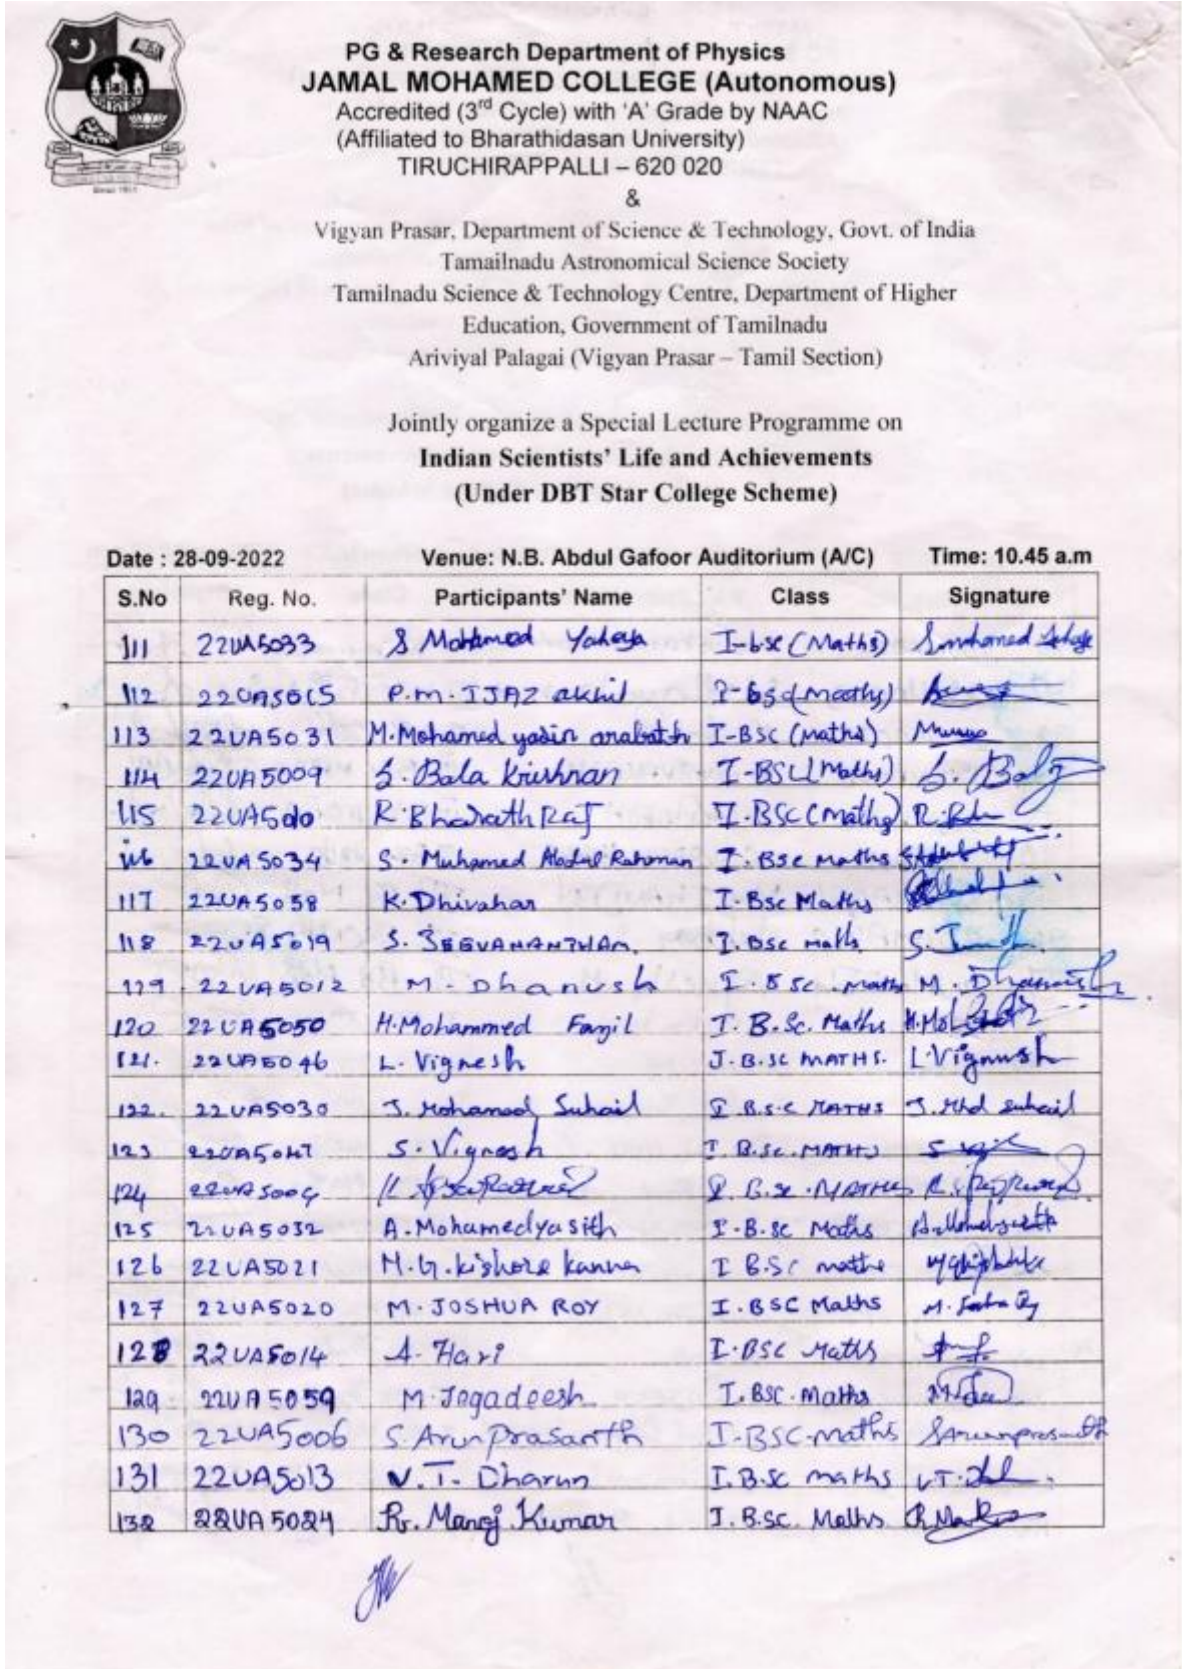 PG & Research Department of Physics
JAMAL MOHAMED COLLEGE (Autonomous)
Accredited (3rd Cycle) with 'A' Grade by NAAC
(Affiliated to Bharathidasan University)
TIRUCHIRAPPALLI – 620 020
&
Vigyan Prasar, Department of Science & Technology, Govt. of India
Tamailnadu Astronomical Science Society
Tamilnadu Science & Technology Centre, Department of Higher
Education, Government of Tamilnadu
Ariviyal Palagai (Vigyan Prasar – Tamil Section)
Jointly organize a Special Lecture Programme on
Indian Scientists' Life and Achievements
(Under DBT Star College Scheme)
Date : 28-09-2022 Venue: N.B. Abdul Gafoor Auditorium (A/C) Time: 10.45 a.m
S.No Reg. No. Participants' Name Class Signature
111 22UA5033 S Mohamed Yahaya I-bsc (Maths)
112 22UA5015 P.m. IJAZ akhil I-bsc (Maths)
113 22UA5031 M.Mohamed yasin arabath I-BSC (Maths)
114 22UA5009 S. Bala Krishnan I-BSC (Maths) S. Bala
115 R. Bharath Raj I.BSC (Maths)
116 22UA5034 S. Muhamed Abdul Rahman I. BSc maths
117 22UA5058 K. Dhivahar I. Bsc Maths
118 22UA5019 S. JEEVANANTHAM. I. Bsc maths
119 22UA5012 M. Dhanush I. BSc. Maths M. Dhanush
120 22UA5050 H.Mohammed Fazil I. B.Sc. Maths
121. 22UA5046 L. Vignesh I.B.SC MATHS. L.Vignesh
122. 22UA5030 J. Mohamed Suhail I B.S.C MATHS J. Mhd suhail
123 22UA5047 S. Vignesh I B.Sc. MATHS
124 22UA5004 I. B.Sc. MATHS
125 22UA5032 A. Mohamedyasith I-B.Sc Maths
126 22UA5021 M.G. kishore kanna I B.Sc maths
127 22UA5020 M. JOSHUA ROY I. BSC Maths
128 22UA5014 A. Hari I. BSC Maths
129 22UA5059 M. Jegadeesh I. BSC. Maths
130 22UA5006 S. Arun Prasanth I-BSC-maths S.Arunprasanth
131 22UA5013 V. T. Dharun I.B.Sc maths
132 22UA5024 R. Manoj Kumar I. B.SC. Maths